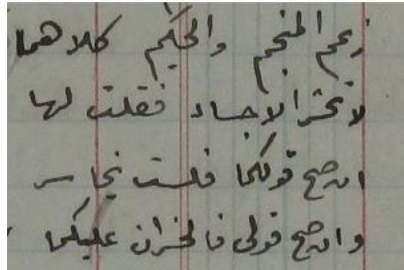 زعم المنجم والحكيم كلاهما
لا تحشر الاجساد فقلت لها
ان صح قولكما فلست بخاسر
وان صح قولى فالخسران عليكما